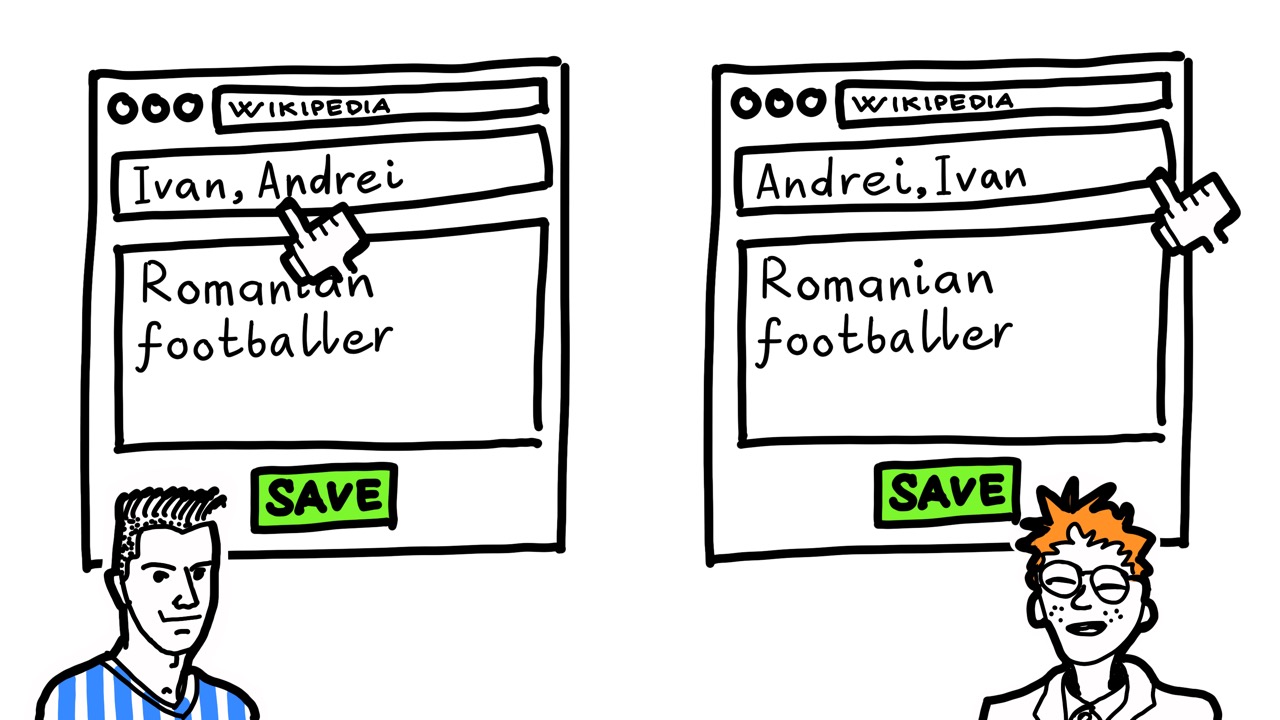 WIKIPEDIA
Ivan, Andrei
Romanian
footballer
SAVE
WIKIPEDIA
Andrei, Ivan
Romanian
footballer
SAVE